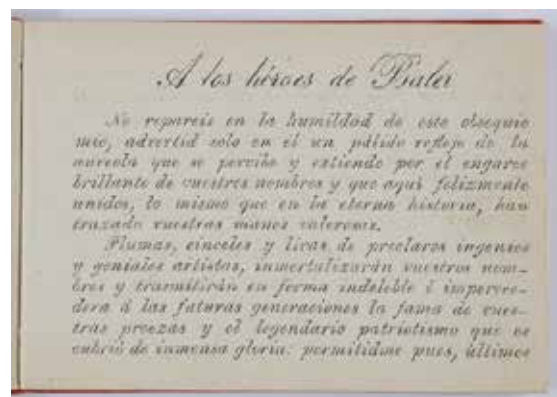 A los héroes de Baler
No repareis en la humildad de este obsequio
mio, advertid solo en él un pálido reflejo de la
aureola que se percibe y extiende por el engarce
brillante de vuestros nombres y que aquí felizmente
unidos, lo mismo que en la eterna historia, han
trazado vuestras manos valerosas.
Plumas, cinceles y liras de preclaros ingenios
y geniales artistas, inmortalizarán vuestros nom-
bres y transmitirán en forma indeleble é imperece-
dera á las futuras generaciones la fama de vues-
tras proezas y el legendario patriotismo que os
cubrió de inmensa gloria: permitidme pues, últimos